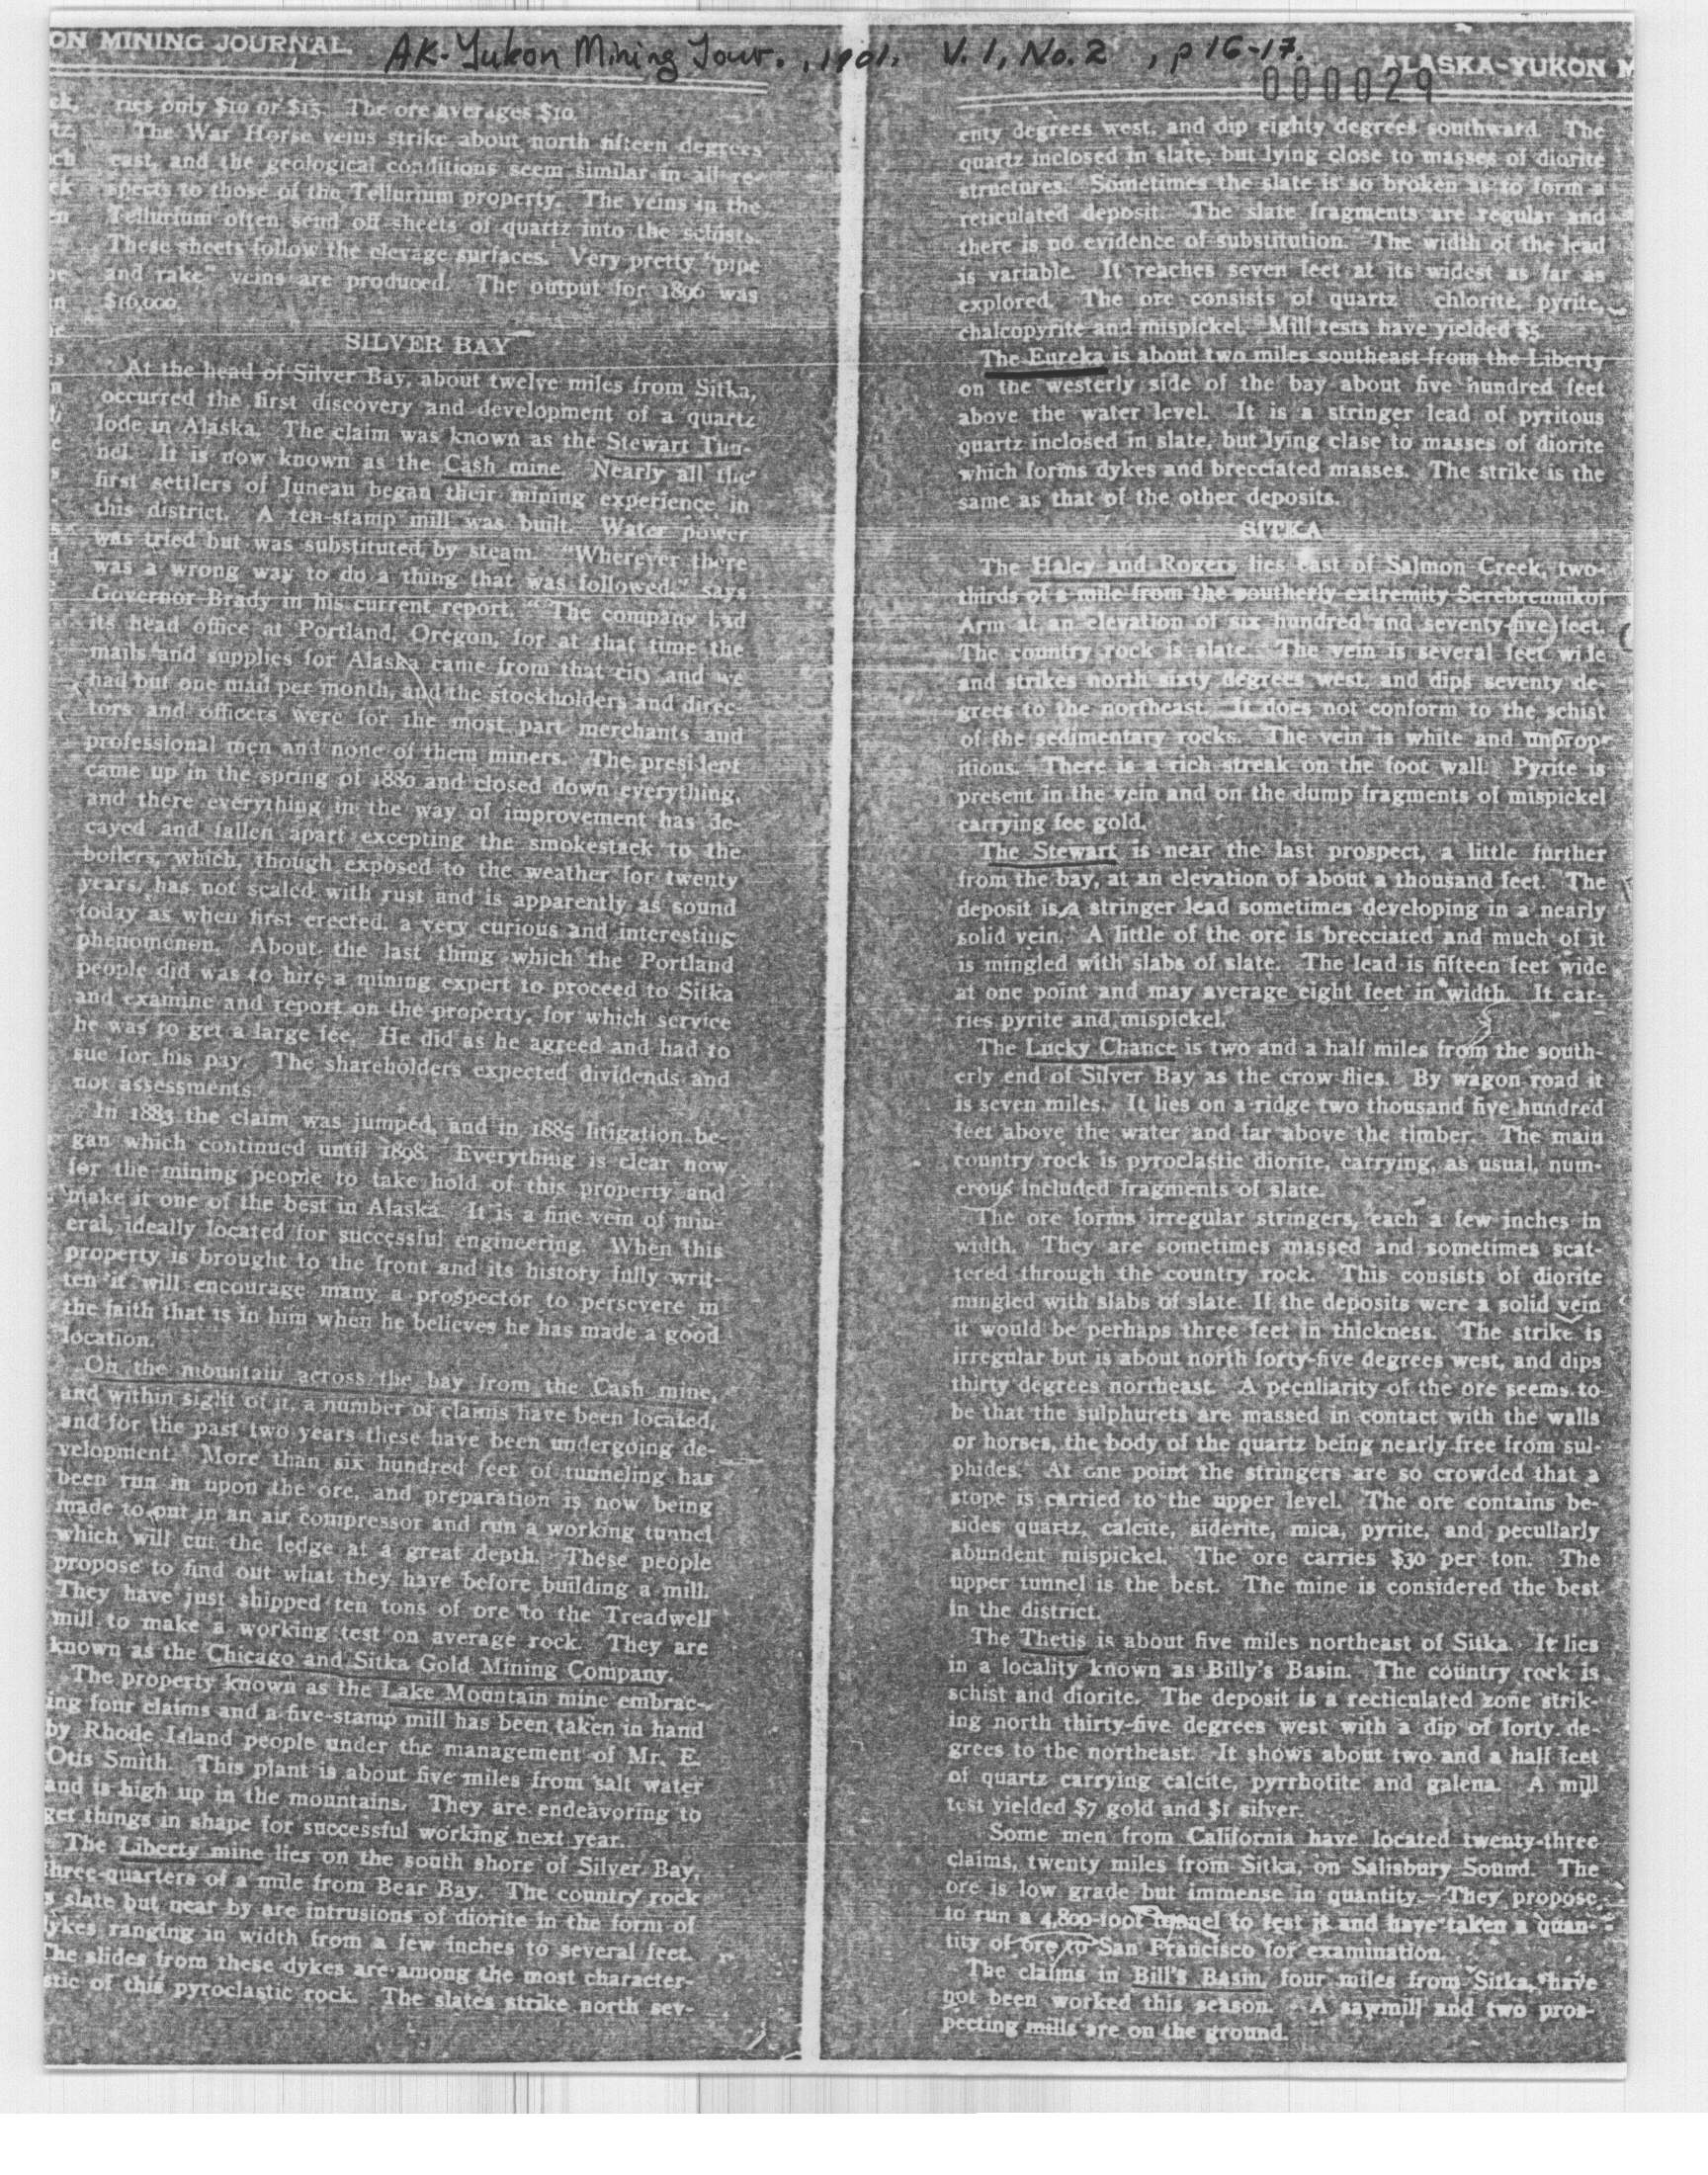 ON MINING JOURNAL.
AK-Yukon Mining Jour., 1901. V. 1, No. 2, p 16-17.
ALASKA-YUKON M
000029
ries only $10 or $15. The ore averages $10
The War Horse veins strike about north fifteen degrees
east, and the geological conditions seem similar in all re-
spects to those of the Tellurium property. The veins in the
Tellurium often send off sheets of quartz into the schists.
These sheets follow the clevage surfaces. Very pretty "pipe
and rake" veins are produced. The output for 1896 was
$16,000.
SILVER BAY
At the head of Silver Bay, about twelve miles from Sitka,
occurred the first discovery and development of a quartz
lode in Alaska. The claim was known as the Stewart Tun-
nel. It is now known as the Cash mine. Nearly all the
first settlers of Juneau began their mining experience in
this district. A ten-stamp mill was built. Water power
was tried but was substituted by steam. "Wherever there
was a wrong way to do a thing that was followed," says
Governor Brady in his current report. "The company had
its head office at Portland, Oregon, for at that time the
mails and supplies for Alaska came from that city and we
had but one mail per month, and the stockholders and direc-
tors and officers were for the most part merchants and
professional men and none of them miners. The president
came up in the spring of 1880 and closed down everything,
and there everything in the way of improvement has de-
cayed and fallen apart excepting the smokestack to the
boilers, which, though exposed to the weather for twenty
years, has not scaled with rust and is apparently as sound
today as when first erected, a very curious and interesting
phenomenon. About the last thing which the Portland
people did was to hire a mining expert to proceed to Sitka
and examine and report on the property, for which service
he was to get a large fee. He did as he agreed and had to
sue for his pay. The shareholders expected dividends and
not assessments.
In 1883 the claim was jumped, and in 1885 litigation be-
gan which continued until 1898. Everything is clear now
for the mining people to take hold of this property and
make it one of the best in Alaska. It is a fine vein of min-
eral, ideally located for successful engineering. When this
property is brought to the front and its history fully writ-
ten it will encourage many a prospector to persevere in
the faith that is in him when he believes he has made a good
location.
On the mountain across the bay from the Cash mine,
and within sight of it, a number of claims have been located,
and for the past two years these have been undergoing de-
velopment. More than six hundred feet of tunneling has
been run in upon the ore, and preparation is now being
made to put in an air compressor and run a working tunnel
which will cut the ledge at a great depth. These people
propose to find out what they have before building a mill.
They have just shipped ten tons of ore to the Treadwell
mill to make a working test on average rock. They are
known as the Chicago and Sitka Gold Mining Company.
The property known as the Lake Mountain mine embrac-
ing four claims and a five-stamp mill has been taken in hand
by Rhode Island people under the management of Mr. E.
Otis Smith. This plant is about five miles from salt water
and is high up in the mountains. They are endeavoring to
get things in shape for successful working next year.
The Liberty mine lies on the south shore of Silver Bay,
three-quarters of a mile from Bear Bay. The country rock
s slate but near by are intrusions of diorite in the form of
lykes ranging in width from a few inches to several feet.
The slides from these dykes are among the most character-
stic of this pyroclastic rock. The slates strike north sev-
enty degrees west, and dip eighty degrees southward. The
quartz inclosed in slate, but lying close to masses of diorite
structures. Sometimes the slate is so broken as to form a
reticulated deposit. The slate fragments are regular and
there is no evidence of substitution. The width of the lead
is variable. It reaches seven feet at its widest as far as
explored. The ore consists of quartz chlorite, pyrite,
chalcopyrite and mispickel. Mill tests have yielded $5.
The Eureka is about two miles southeast from the Liberty
on the westerly side of the bay about five hundred feet
above the water level. It is a stringer lead of pyritous
quartz inclosed in slate, but lying clase to masses of diorite
which forms dykes and brecciated masses. The strike is the
same as that of the other deposits.
SITKA
The Haley and Rogers lies east of Salmon Creek, two-
thirds of a mile from the southerly extremity Serebrennikof
Arm at an elevation of six hundred and seventy-five feet.
The country rock is slate. The vein is several feet wide
and strikes north sixty degrees west, and dips seventy de-
grees to the northeast. It does not conform to the schist
of the sedimentary rocks. The vein is white and unprop-
itious. There is a rich streak on the foot wall. Pyrite is
present in the vein and on the dump fragments of mispickel
carrying fee gold.
The Stewart is near the last prospect, a little further
from the bay, at an elevation of about a thousand feet. The
deposit is a stringer lead sometimes developing in a nearly
solid vein. A little of the ore is brecciated and much of it
is mingled with slabs of slate. The lead is fifteen feet wide
at one point and may average eight feet in width. It car-
ries pyrite and mispickel.
The Lucky Chance is two and a half miles from the south-
erly end of Silver Bay as the crow flies. By wagon road it
is seven miles. It lies on a ridge two thousand five hundred
feet above the water and far above the timber. The main
country rock is pyroclastic diorite, carrying, as usual, num-
erous included fragments of slate.
The ore forms irregular stringers, each a few inches in
width. They are sometimes massed and sometimes scat-
tered through the country rock. This consists of diorite
mingled with slabs of slate. If the deposits were a solid vein
it would be perhaps three feet in thickness. The strike is
irregular but is about north forty-five degrees west, and dips
thirty degrees northeast. A peculiarity of the ore seems to
be that the sulphurets are massed in contact with the walls
or horses, the body of the quartz being nearly free from sul-
phides. At one point the stringers are so crowded that a
stope is carried to the upper level. The ore contains be-
sides quartz, calcite, siderite, mica, pyrite, and peculiarly
abundent mispickel. The ore carries $30 per ton. The
upper tunnel is the best. The mine is considered the best
in the district.
The Thetis is about five miles northeast of Sitka. It lies
in a locality known as Billy's Basin. The country rock is
schist and diorite. The deposit is a recticulated zone strik-
ing north thirty-five degrees west with a dip of forty de-
grees to the northeast. It shows about two and a half feet
of quartz carrying calcite, pyrrhotite and galena. A mill
test yielded $7 gold and $1 silver.
Some men from California have located twenty-three
claims, twenty miles from Sitka, on Salisbury Sound. The
ore is low grade but immense in quantity. They propose
to run a 4,800-foot tunnel to test it and have taken a quan-
tity of ore to San Francisco for examination.
The claims in Bill's Basin, four miles from Sitka, have
not been worked this season. A sawmill and two pros-
pecting mills are on the ground.